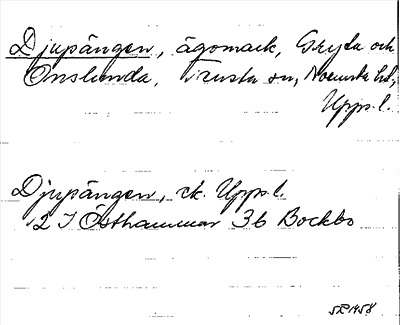 Djupängen, ägomark, Gryta och
Onslunda, Irusta sn, Norunda hd,
Upps.l.
Djupängen, rk. Upps.l.
12 I Östhammar 3b Bockbo